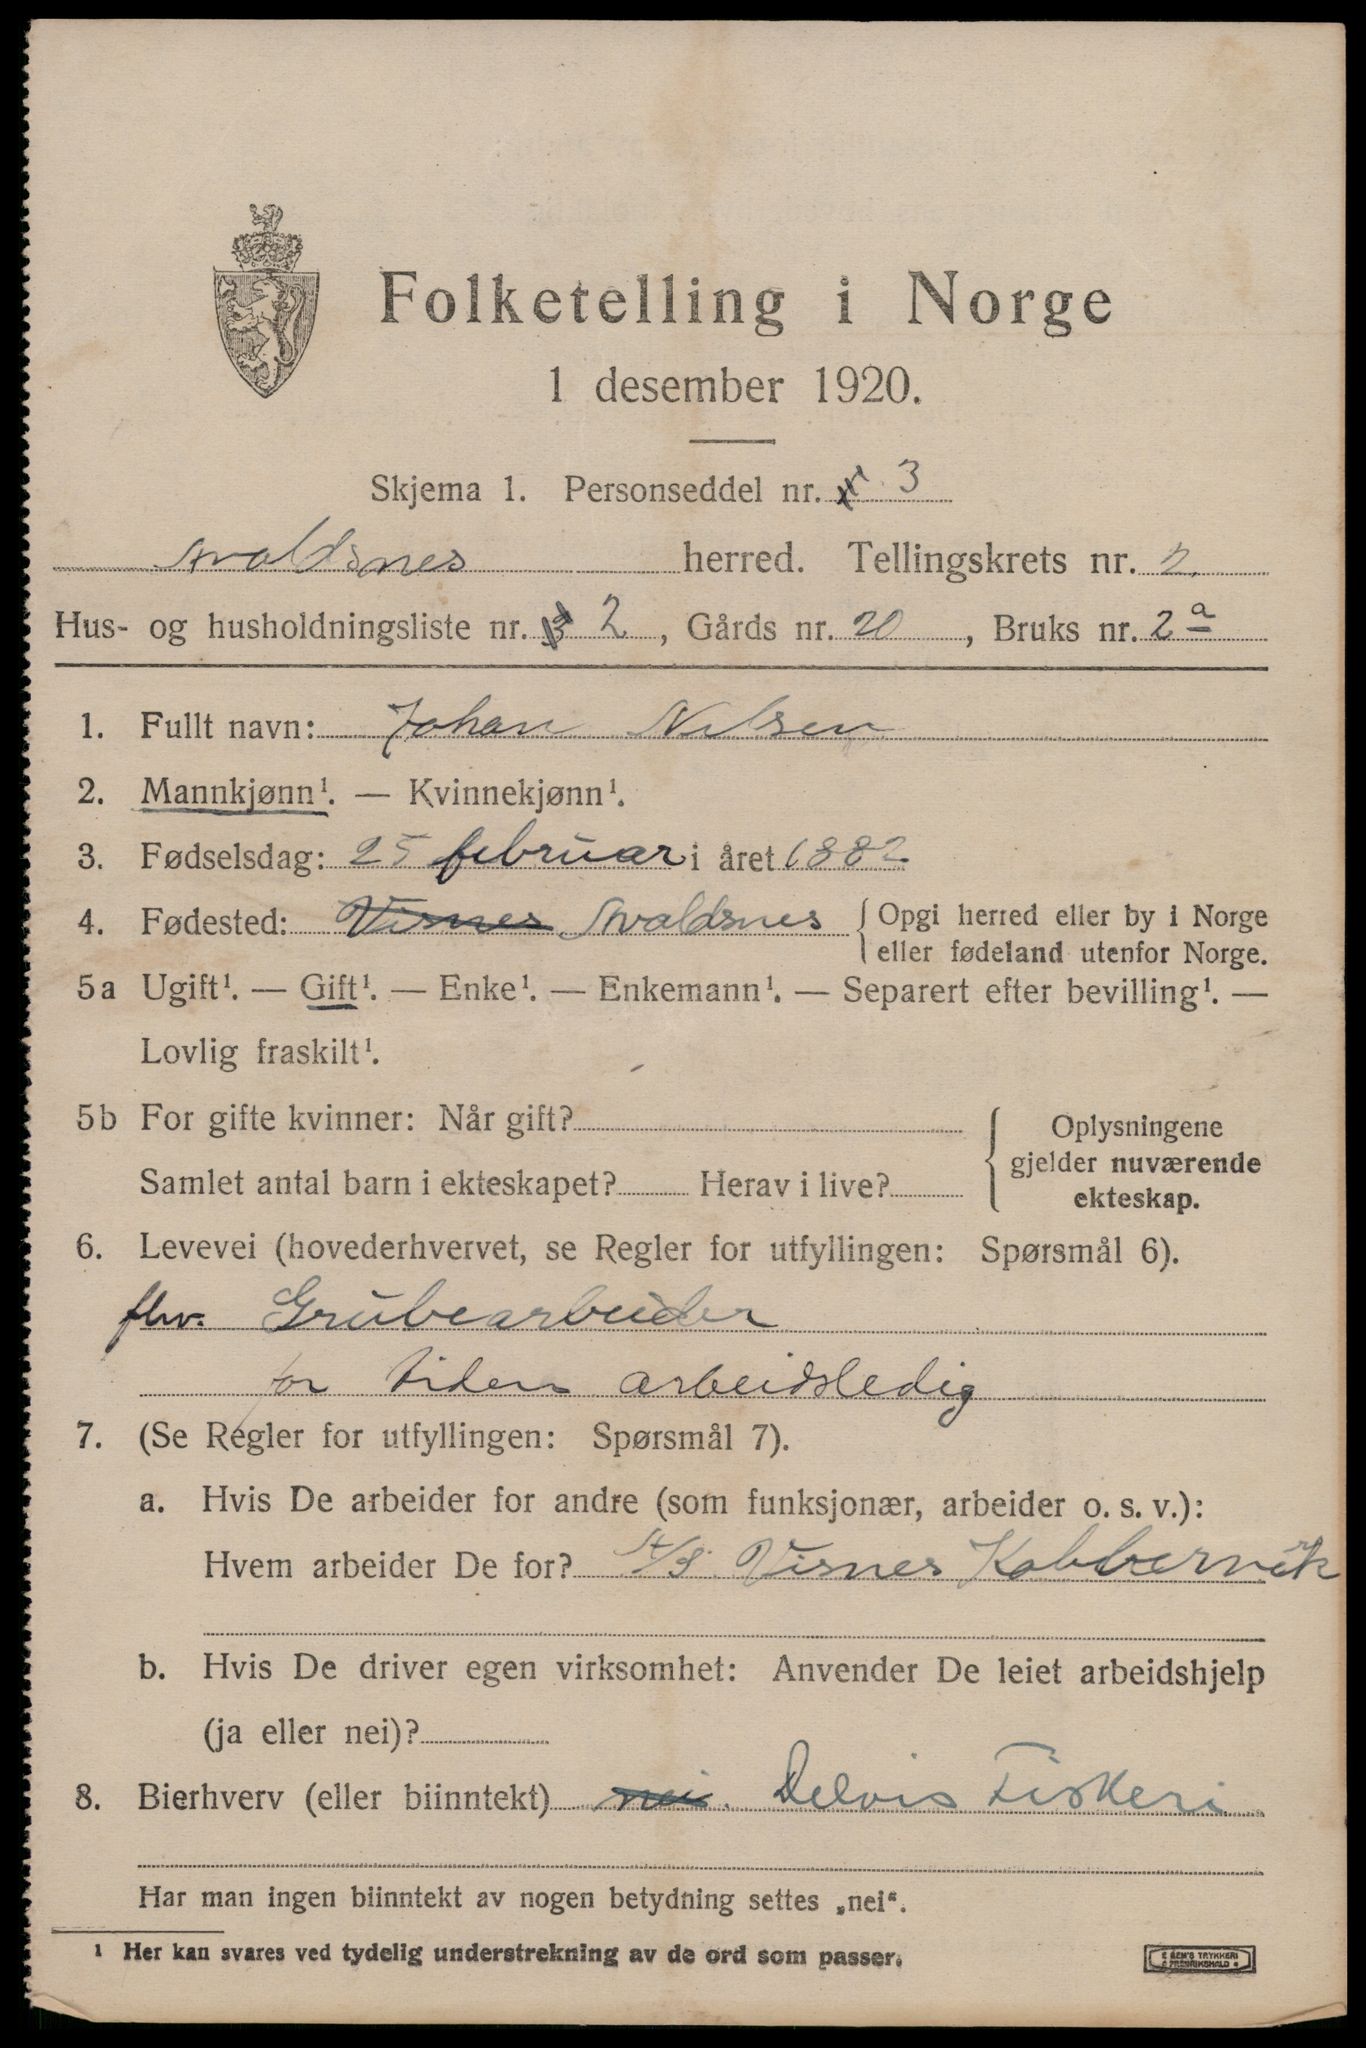 Folketelling i Norge
1 desember 1920.
Skjema 1. Personseddel nr. 3
Avaldsnes herred. Tellingskrets nr. 2.
Hus- og husholdningsliste nr. 2, Gårds nr. 20, Bruks nr. 2a
1. Fullt navn: Johan Nilsen
2. Mannkjønn¹. — Kvinnekjønn¹.
3. Fødselsdag: 25 februar i året 1882
4. Fødested: Visnes Avaldsnes { Opgi herred eller by i Norge
eller fødeland utenfor Norge.
5a Ugift¹. — Gift¹. — Enke¹. — Enkemann¹. — Separert efter bevilling¹. —
Lovlig fraskilt¹.
5b For gifte kvinner: Når gift?
Samlet antal barn i ekteskapet? Herav i live?
{ Oplysningene
gjelder nuværende
ekteskap.
6. Levevei (hovederhvervet, se Regler for utfyllingen: Spørsmål 6).
fhv. Grubearbeider
for tiden arbeidsledig
7. (Se Regler for utfyllingen: Spørsmål 7).
a. Hvis De arbeider for andre (som funksjonær, arbeider o. s. v.):
Hvem arbeider De for? A/S. Visnes Kobberverk
b. Hvis De driver egen virksomhet: Anvender De leiet arbeidshjelp
(ja eller nei)?
8. Bierhverv (eller biinntekt) nei. Delvis Fiskeri
Har man ingen biinntekt av nogen betydning settes „nei“.
¹ Her kan svares ved tydelig understrekning av de ord som passer.
TRYKKERI
FREDRIKSHALD